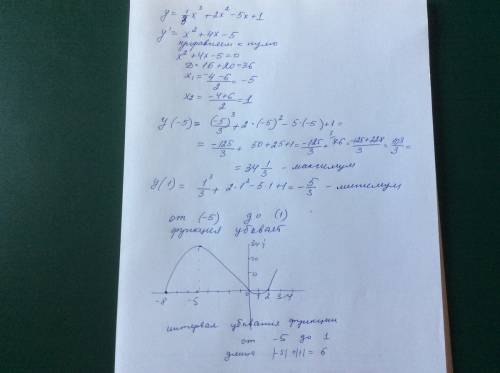 y = 1/3 x³ + 2x² - 5x + 1
y' = x² + 4x - 5
x² + 4x - 5 = 0
D = 16 + 20 = 36
x₁ = (-4-6)/2 = -5
x₂ = (-4+6)/2 = 1
y(-5) = (-5)³/3 + 2·(-5)² - 5·(-5) + 1 =
= -125/3 + 50 + 25 + 1 = -125/3 + 76 = = 103/3 =
= 34 1/3 - максимум
y(1) = 1³/3 + 2·1² - 5·1 + 1 = -5/3 - минимум
от (-5) до (1)
функция убывает
-8 -5 1 2 3 4
интервал убывания функции
от -5 до 1
длина |-5| + |1| = 6